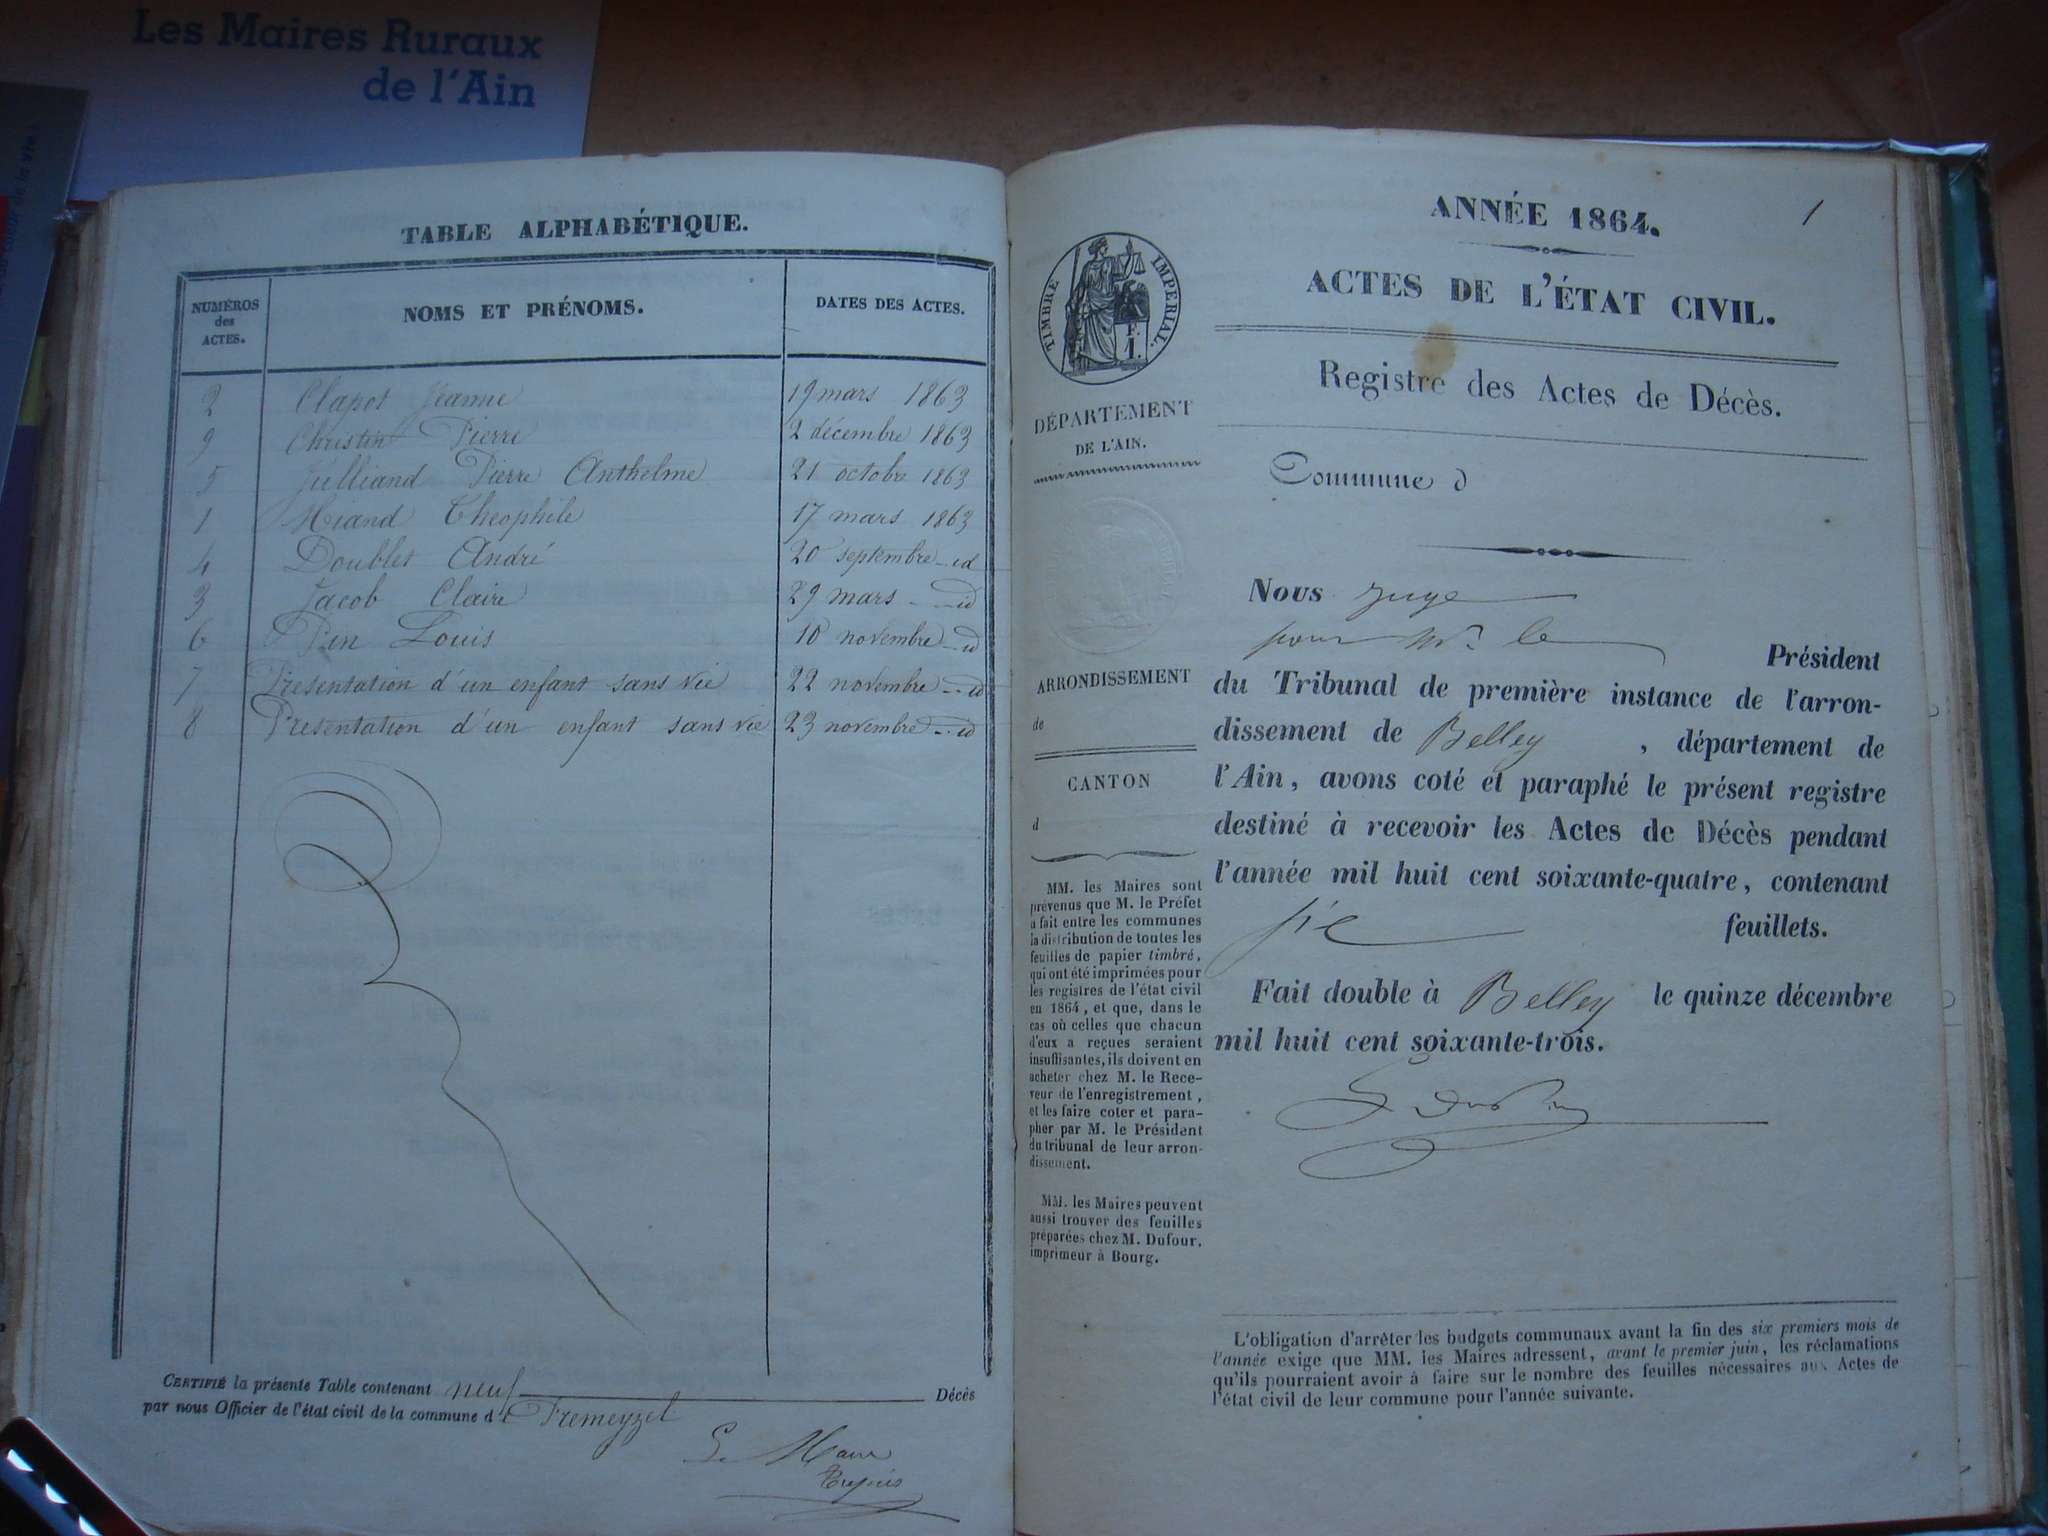 Les Maires Ruraux
de l'Ain
TABLE ALPHABÉTIQUE.
NUMÉROS des ACTES. NOMS ET PRÉNOMS. DATES DES ACTES.
2 Clapot Jeanne 19 mars 1863
9 Christin Pierre 2 décembre 1863
5 Julliand Pierre Anthelme 21 octobre 1863
1 Miand Théophile 17 mars 1863
4 Doublet André 20 septembre id
3 Jacob Claire 29 mars id
6 Pin Louis 10 novembre id
7 Présentation d'un enfant sans vie 22 novembre id
8 Présentation d'un enfant sans vie 23 novembre id
CERTIFIÉ la présente Table contenant neuf Décès
par nous Officier de l'état civil de la commune de Premeyzel
Le Maire
1
ANNÉE 1864.
ACTES DE L'ÉTAT CIVIL.
Registre des Actes de Décès.
Commune d
TIMBRE IMPERIAL.
F.
1.
DÉPARTEMENT
DE L'AIN.
ARRONDISSEMENT
de
CANTON
d
MM. les Maires sont
prévenus que M. le Préfet
a fait entre les communes
la distribution de toutes les
feuilles de papier timbré,
qui ont été imprimées pour
les registres de l'état civil
en 1864, et que, dans le
cas où celles que chacun
d'eux a reçues seraient
insuffisantes, ils doivent en
acheter chez M. le Rece-
veur de l'enregistrement,
et les faire coter et para-
pher par M. le Président
du tribunal de leur arron-
dissement.
MM. les Maires peuvent
aussi trouver des feuilles
préparées chez M. Dufour,
imprimeur à Bourg.
Nous juge
pour Mr. le Président
du Tribunal de première instance de l'arron-
dissement de Belley, département de
l'Ain, avons coté et paraphé le présent registre
destiné à recevoir les Actes de Décès pendant
l'année mil huit cent soixante-quatre, contenant
six feuillets.
Fait double à Belley le quinze décembre
mil huit cent soixante-trois.
L'obligation d'arrêter les budgets communaux avant la fin des six premiers mois de
l'année exige que MM. les Maires adressent, avant le premier juin, les réclamations
qu'ils pourraient avoir à faire sur le nombre des feuilles nécessaires aux Actes de
l'état civil de leur commune pour l'année suivante.